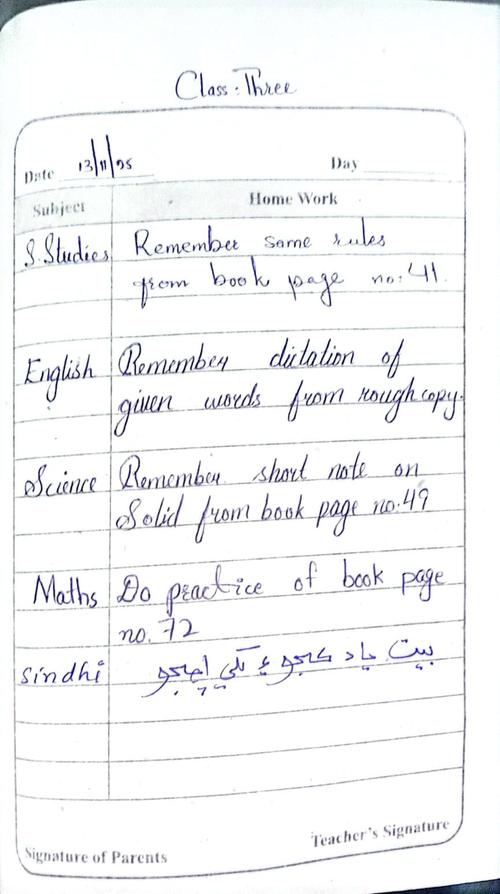 Class: Three
Date 13/11/25 Day
Subject Home Work
S.Studies Remember some rules
from book page no: 41.
English Remember dictation of
given words from rough copy.
Science Remember short note on
Solid from book page no. 49
Maths Do practice of book page
no. 72
Sindhi بيت ياد ڪجو ۽ لکي اچجو
Signature of Parents Teacher's Signature